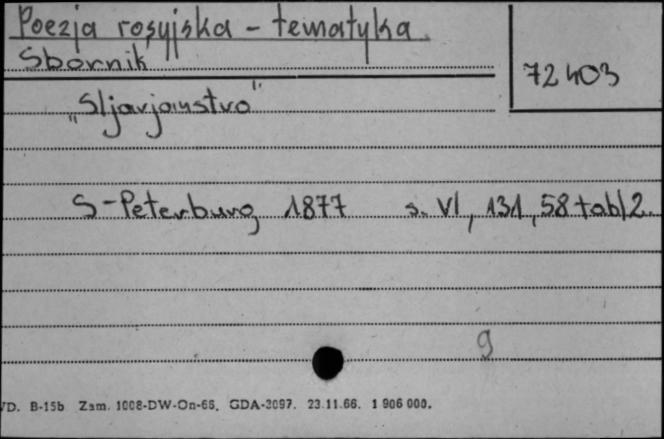 Poezja rosyjska - tematyka.
Sbornik
72403
"Sljavjanstvo"
S-Peterburg 1877 s. VI, 131, 58 tabl 2
9
VD. B-15b Zam. 1008-DW-On-66. GDA-3097. 23.11.66. 1 906 000.